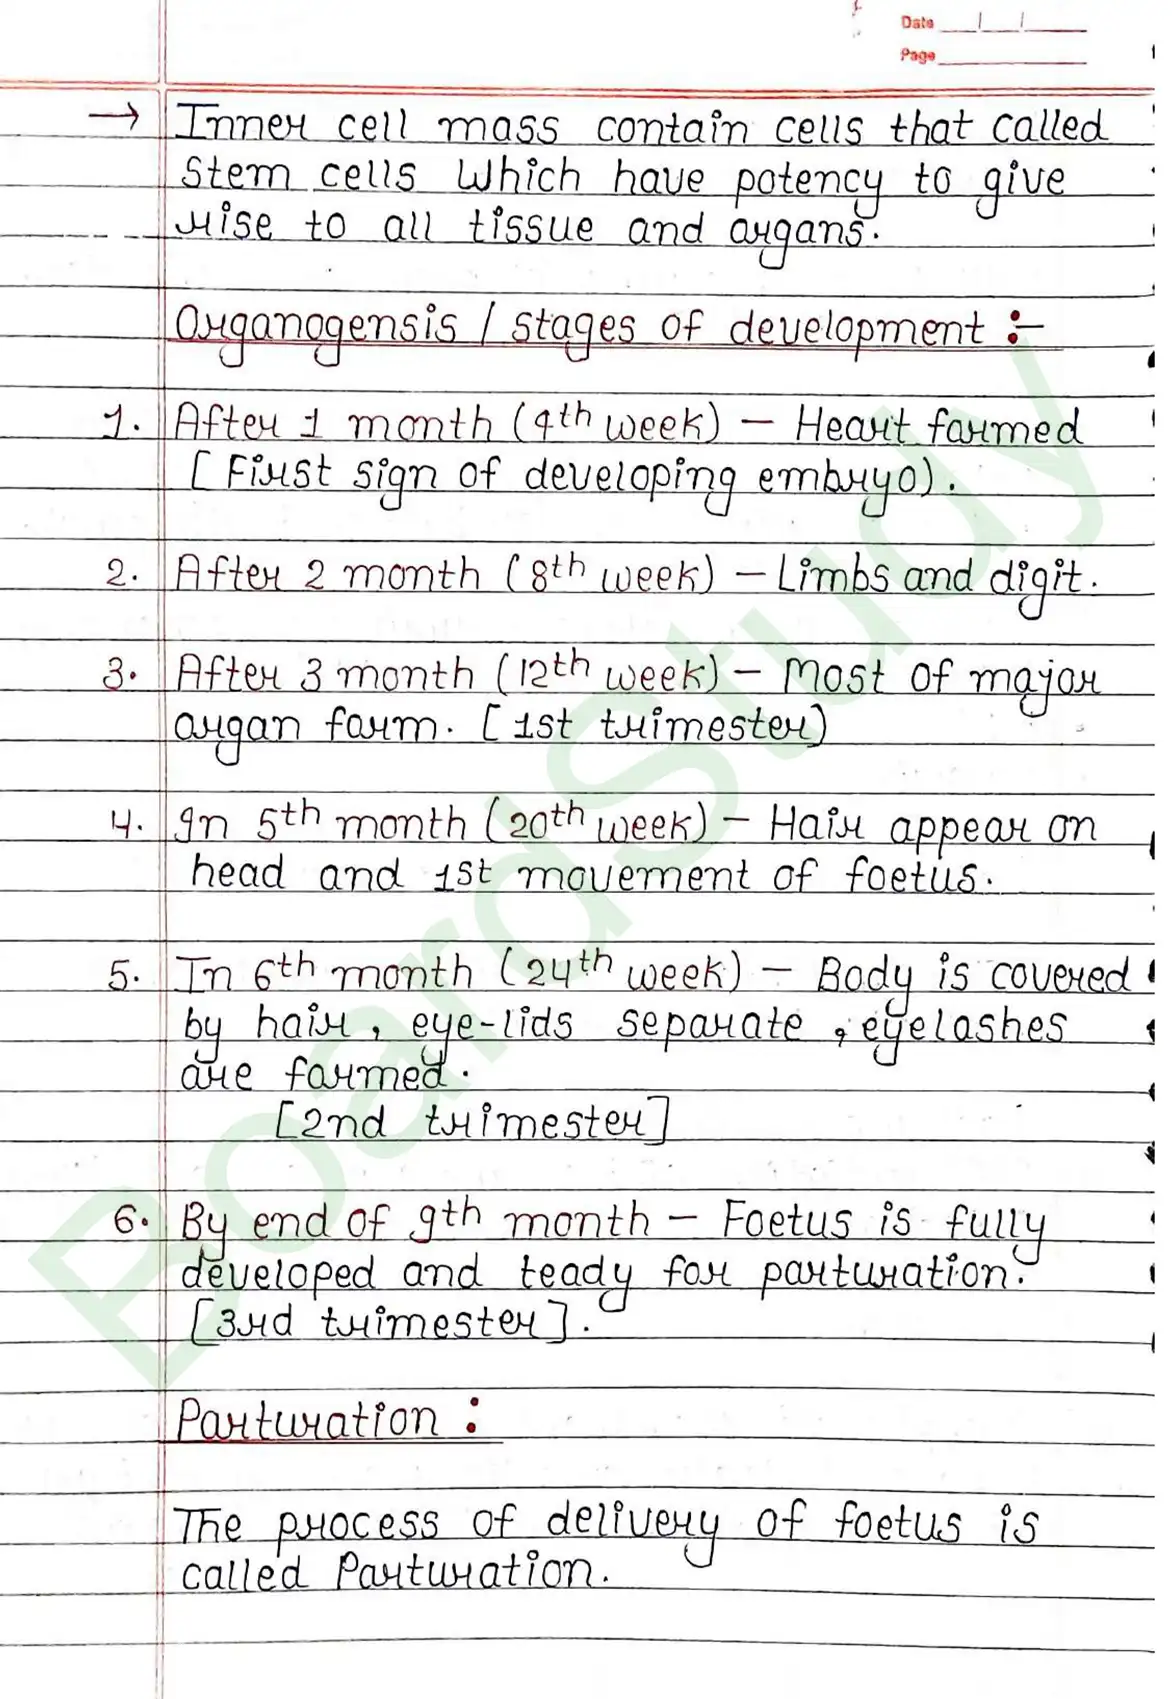 Date
Page
→ Inner cell mass contain cells that called
Stem cells which have potency to give
rise to all tissue and organs.
Organogensis / stages of development :-
1. After 1 month (4th week) – Heart formed
[First sign of developing embryo).
2. After 2 month (8th week) – Limbs and digit.
3. After 3 month (12th week) – Most of major
organ form. [1st trimester)
4. In 5th month (20th week) – Hair appear on
head and 1st movement of foetus.
5. In 6th month (24th week) – Body is covered
by hair, eye-lids separate, eyelashes
are formed.
[2nd trimester]
6. By end of 9th month – Foetus is fully
developed and teady for parturation.
[3rd trimester].
Parturation :
The process of delivery of foetus is
called Parturation.
BoardStudy